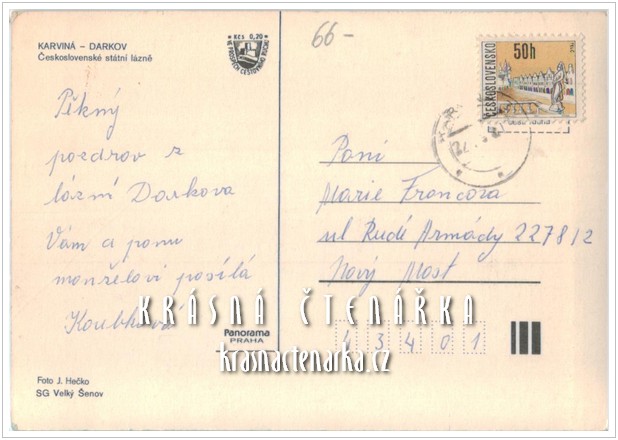 KARVINÁ – DARKOV
Československé státní lázně
Kčs 0,20
VE PROSPĚCH CESTOVNÍHO RUCHU
66-
ČESKOSLOVENSKO
50h
Pěkný
pozdrov z
lázní Darkova
Vám a panu
manželovi posílá
Koubková
Paní
Marie Francova
ul Rudé Armády 2278/2
Nový Most
43401
KRÁSNÁ ČTENÁŘKA
krasnactenarka.cz
Panorama
PRAHA
Foto J. Hečko
SG Velký Šenov